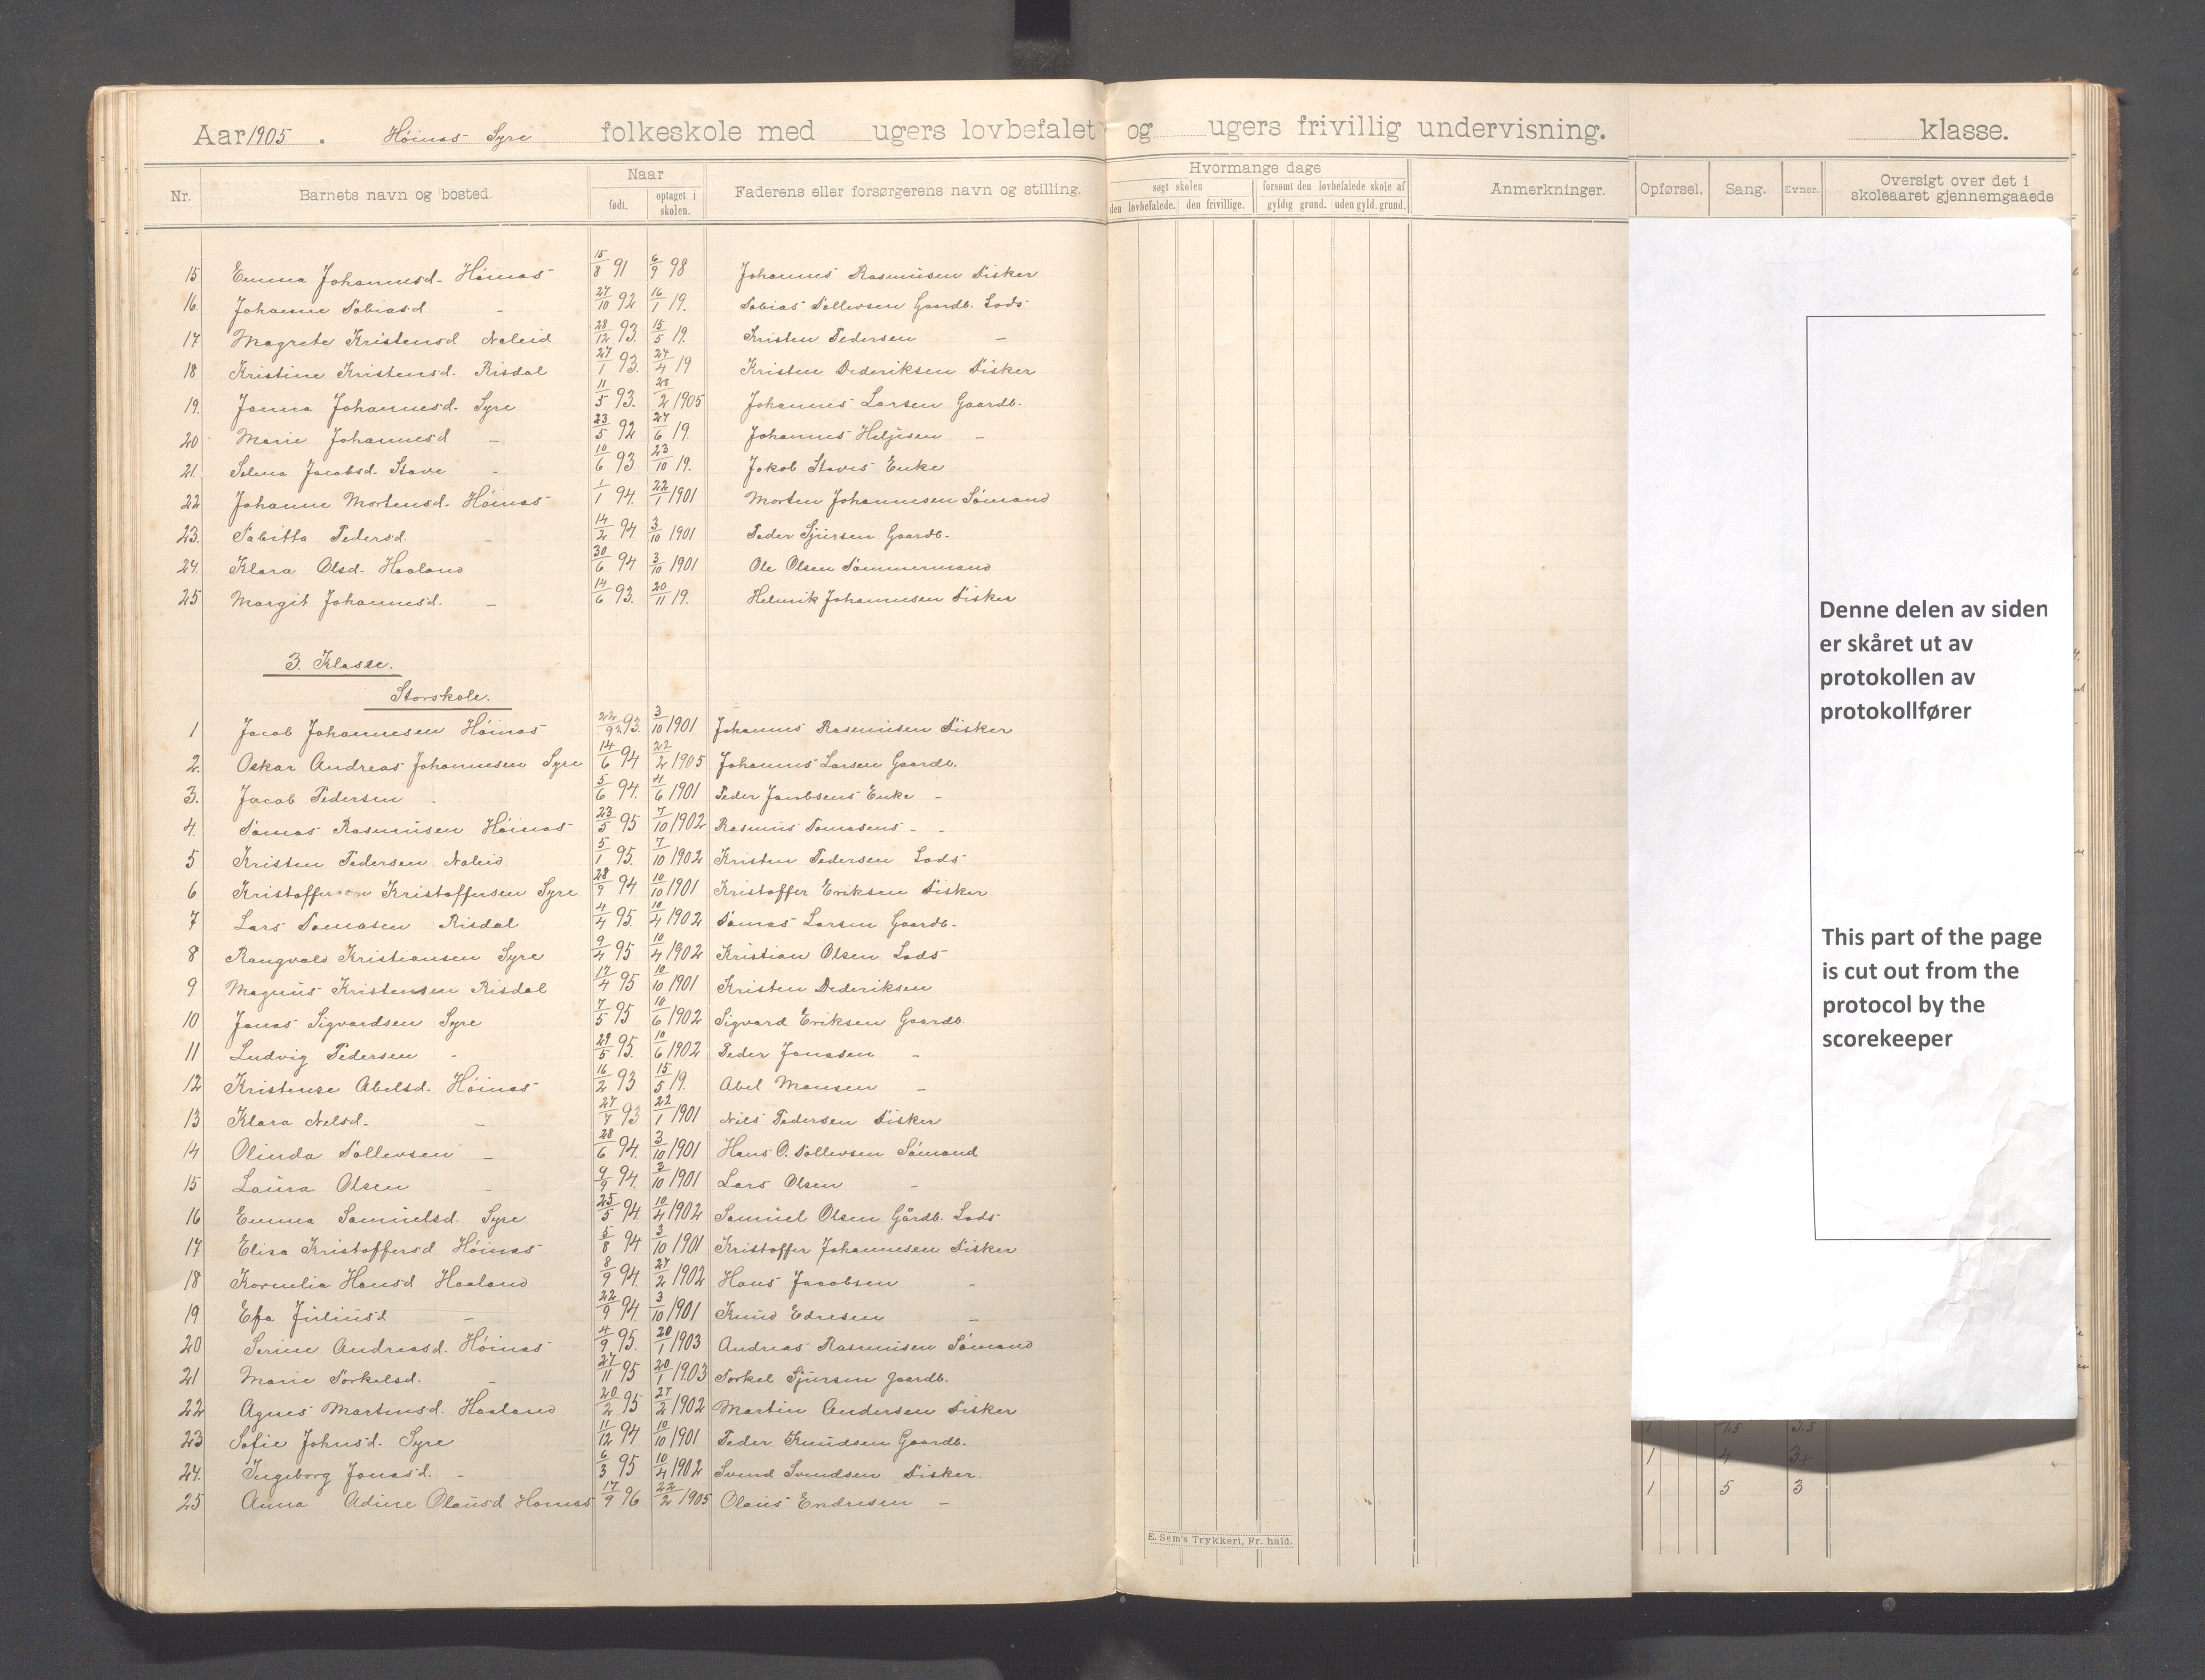 Aar 1905. Høinas Syre folkeskole med ugers lovbefalet og ugers frivillig undervisning. klasse.
Nr. Barnets navn og bosted. Naar født. optaget i skolen. Faderens eller forsørgerens navn og stilling. Hvormange dage søgt skolen den lovbefalede. den frivillige. forsømt den lovbefalede skole af gyldig grund. uden gyld. grund. Anmerkninger. Opførsel. Sang. Evner. Oversigt over det i skoleaaret gjennemgaaede
15 Emma Johannesd. Høinas 15/8 91 6/9 98 Johannes Rasmusen Fisker
16. Johanne Tobiasd - 27/10 92 16/1 19. Tobias Tollevsen Gaardb. Lods
17 Magrete Kristensd Naleid 28/12 93. 15/5 19. Kristen Pedersen -
18 Kristine Kristensd. Risdal 27/1 93. 24/4 19 Kristen Dederiksen Fisker
19. Janna Johannesd. Syre 11/5 93. 28/2 1905 Johannes Larsen Gaardb.
20 Marie Johannesd - 23/5 92 27/6 19. Johannes Heljesen -
21. Selma Jacobsd. Stave - 10/6 93 23/10 19. Jakob Staves Enke
22 Johanne Mortensd. Høinas 1/1 94. 22/1 1901 Morten Johannesen Sømand
23. Tabitta Pedersd. - 14/2 94. 3/10 1901 Peder Sjursen Gaardb.
24. Klara Olsd. Haaland 30/6 94 3/10 1901 Ole Olsen Tømmermand
25 Margit Johannesd. - 14/6 93. 20/11 19. Helmik Johannesen Fisker
3. Klasse.
Storskole.
1 Jacob Johannesen Høinas 93. 3/10 1901 Johannes Rasmusen Fisker
2. Oskar Andreas Johannesen Syre 14/6 94 22/2 1905 Johannes Larsen Gaardb.
3. Jacob Pedersen - 5/6 94. 4/6 1901 Peder Jacobsens Enke -
4. Tomas Rasmusen Høinas 23/5 95 7/10 1902 Rasmus Tomasens - -
5 Kristen Pedersen Naleid 5/1 95. 7/10 1902 Kristen Pedersen Lods
6 Kristoffer Kristoffersen Syre 28/9 94 10/10 1901 Kristoffer Eriksen Fisker
7 Lars Tomasen Risdal 4/4 95. 10/4 1902 Tomas Larsen Gaardb.
8 Rangvald Kristiansen Syre 9/4 95 10/4 1902 Kristian Olsen Lods
9 Magnus Kristensen Risdal 17/4 95 10/10 1901 Kristen Dederiksen
10 Jonas Sigvardsen Syre 7/5 95 10/6 1902 Sigvard Eriksen Gaardb.
11 Ludvig Pedersen - 29/5 95. 10/6 1902 Peder Jonasen -
12 Kristense Abelsd. Høinas 16/2 93 15/5 19. Abel Monsen -
13 Klara Nelsd. - 27/7 93 22/1 1901 Nils Pedersen Fisker
14 Olinda Tollevsen - 28/6 94. 3/10 1901 Hans O. Tollevsen Sømand
15 Laura Olsen - 9/9 94. 3/10 1901 Lars Olsen -
16 Emma Samuelsd. Syre 25/5 94. 10/4 1902 Samuel Olsen Gårdb. Lods
17 Elisa Kristoffersd Høinas 5/8 94 3/10 1901 Kristoffer Johannesen Fisker
18 Kornelia Hansd Haaland 8/9 94. 27/2 1902 Hans Jacobsen -
19 Efa Juliusd - 22/9 94. 3/10 1901 Knud Edresen -
20 Serine Andreasd. Høinas 4/9 95. 20/1 1903 Andreas Rasmusen Sømand
21 Marie Torkelsd. - 27/11 95 20/1 1903 Torkel Sjursen Gaardb.
22 Agnes Martinsd. Haaland 20/2 95 27/2 1902 Martin Andersen Fisker
23 Sofie Johnsd. Syre 11/12 94 10/10 1901 Peder Knudsen Gaardb.
24. Ingeborg Jonasd. - 6/3 95 10/4 1902 Svend Svendsen Fisker.
25 Anna Adine Olausd Hornas 17/9 96 22/2 1905 Olaus Endresen -
E. Sem's Trykkeri, Fr. hald.
Denne delen av siden
er skåret ut av
protokollen av
protokollfører
This part of the page
is cut out from the
protocol by the
scorekeeper
1 4 3+
1 5 3